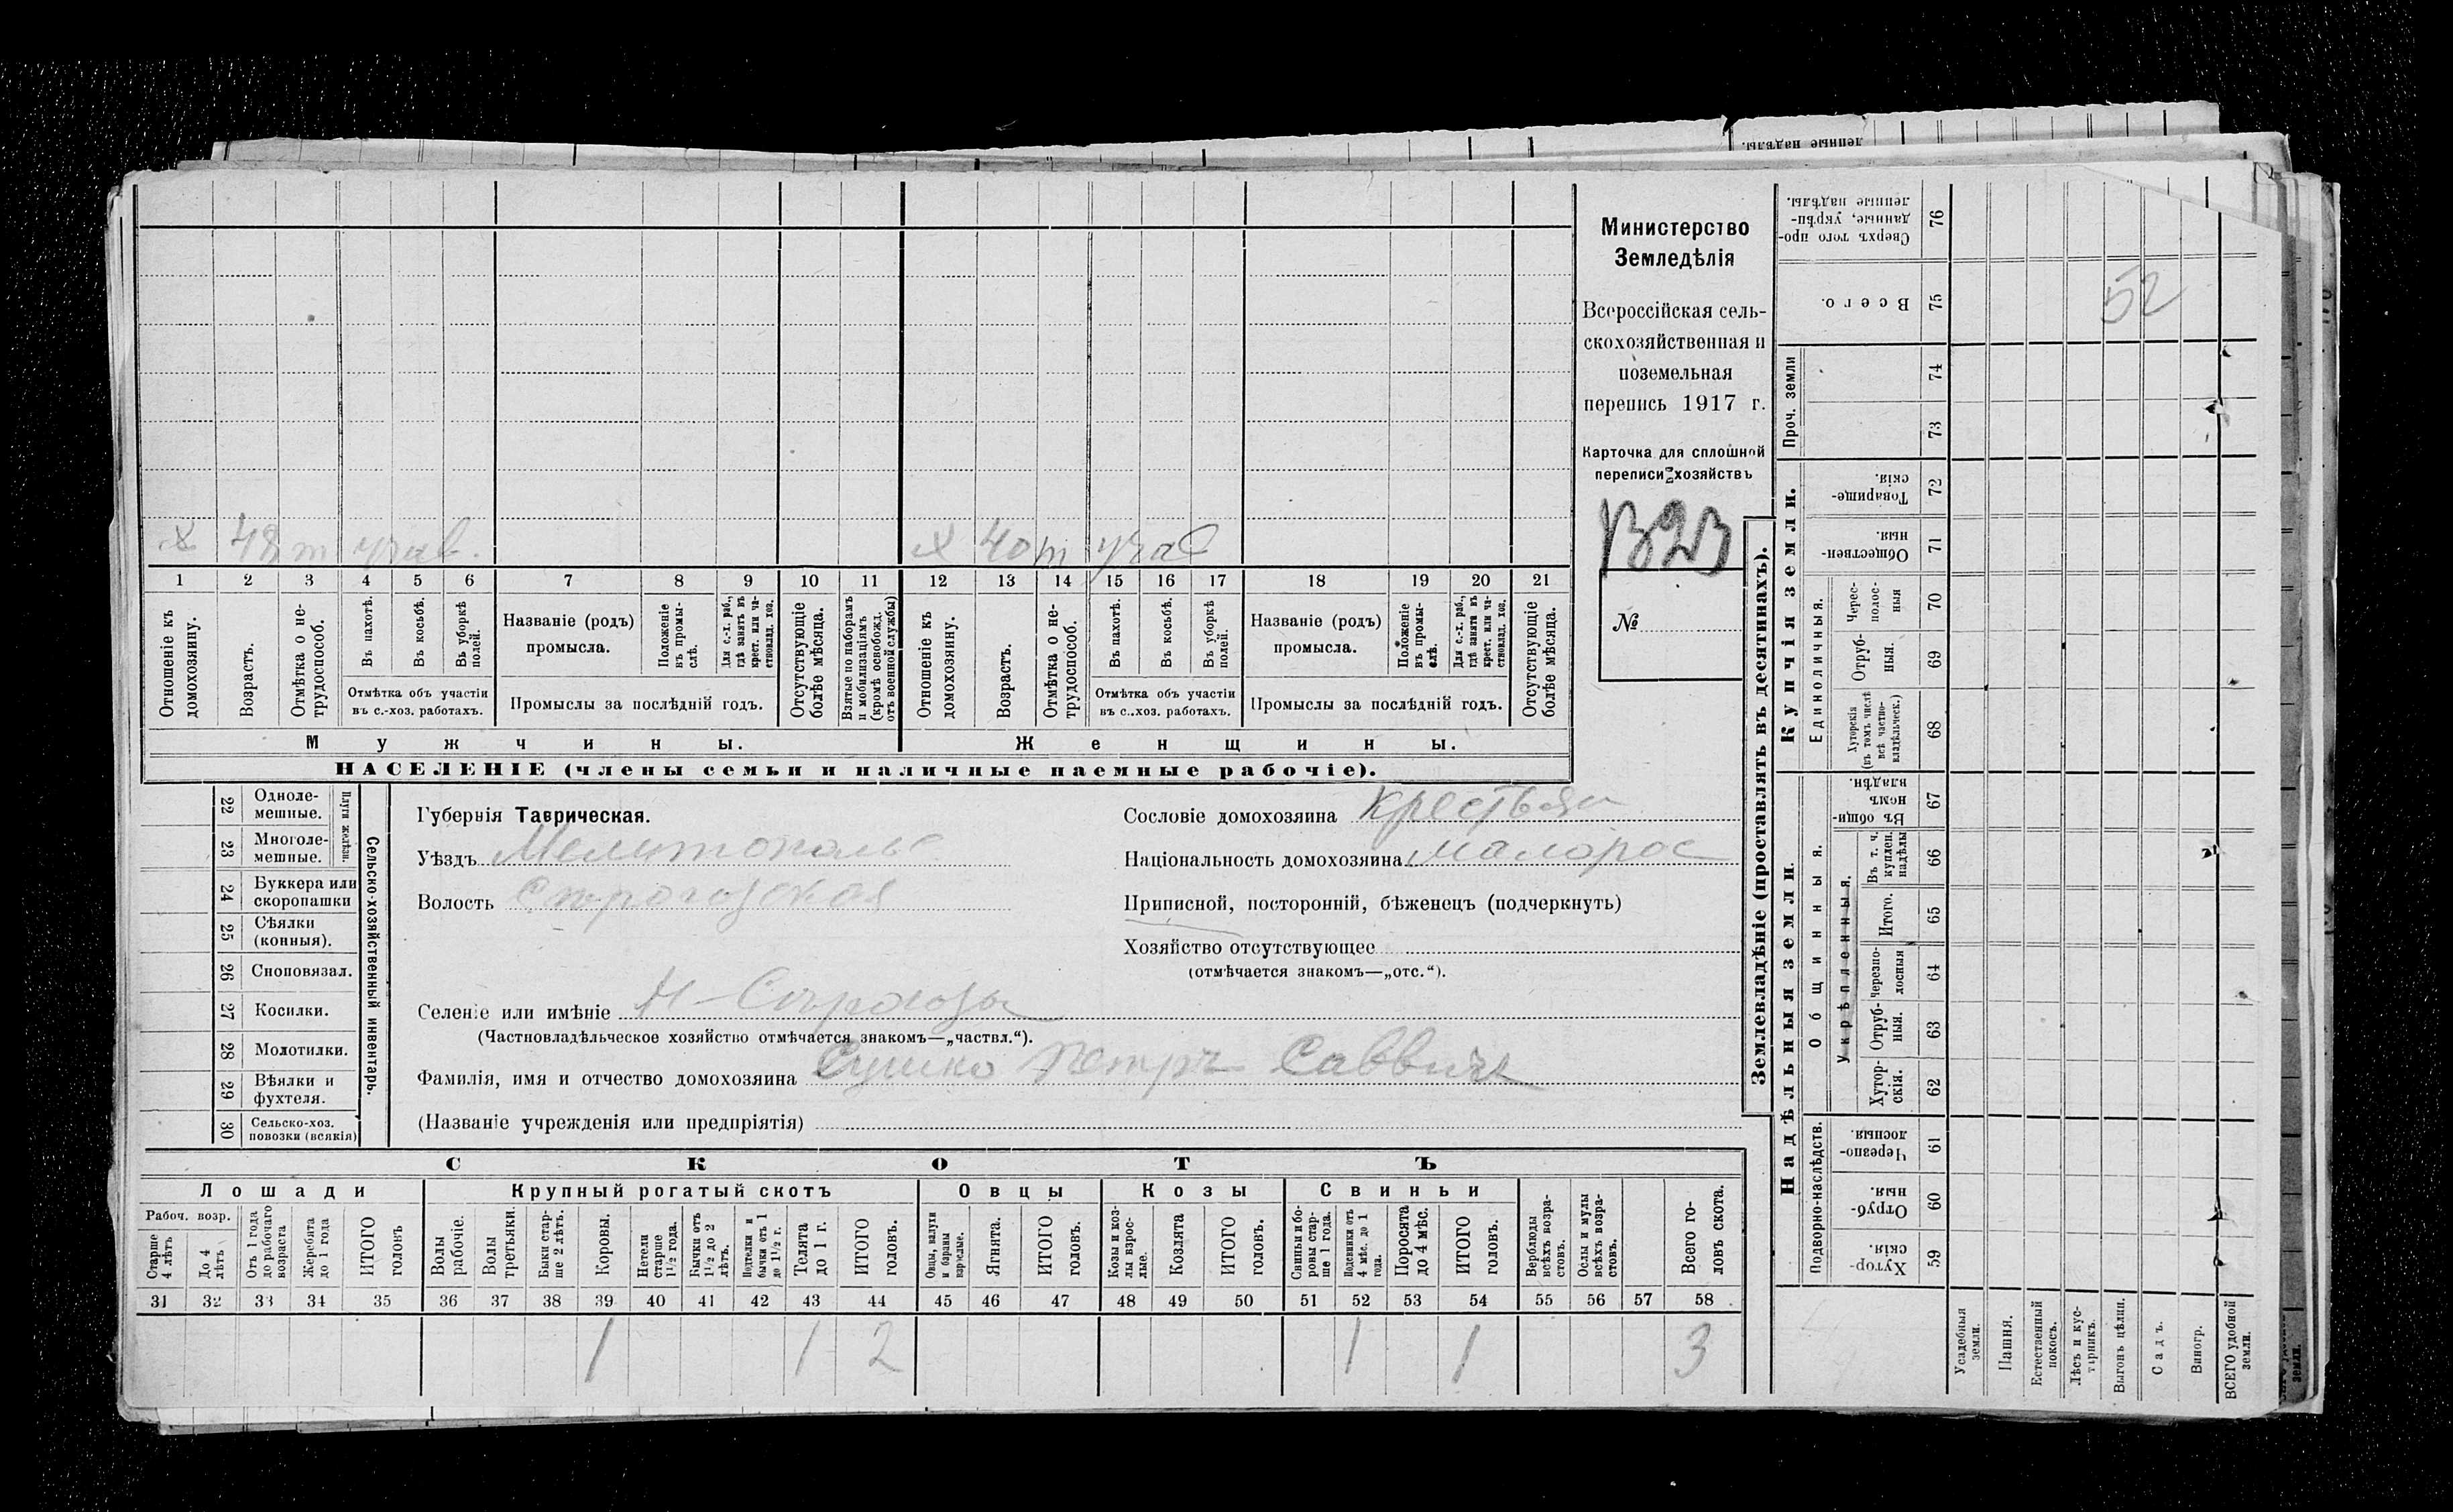 ленные надѣлы.
х 48 т учав. х 40 т учас
1 2 3 4 5 6 7 8 9 10 11 12 13 14 15 16 17 18 19 20 21
Отношеніе къ домохозяину.
Возрастъ.
Отмѣтка о не-трудоспособ.
Въ пахотѣ.
Въ косьбѣ.
Въ уборкѣ полей.
Отмѣтка объ участіи
въ с.-хоз. работахъ.
Названіе (родъ)
промысла.
Положеніе въ промы-слѣ.
Для с.-х. раб., гдѣ занятъ въ крест. или ча-ствовлад. хоз.
Промыслы за послѣдній годъ.
Отсутствующіе болѣе мѣсяца.
Взятые по наборамъ и мобилизаціямъ (кромѣ освобожд. отъ военной службы)
Отношеніе къ домохозяину.
Возрастъ.
Отмѣтка о не-трудоспособ.
Въ пахотѣ.
Въ косьбѣ.
Въ уборкѣ полей.
Отмѣтка объ участіи
въ с.-хоз. работахъ.
Названіе (родъ)
промысла.
Положеніе въ промы-слѣ.
Для с.-х. раб., гдѣ занята въ крест. или ча-ствовлад. хоз.
Промыслы за послѣдній годъ.
Отсутствующіе болѣе мѣсяца.
Мужчины.
Женщины.
НАСЕЛЕНІЕ (члены семьи и наличные наемные рабочіе).
Министерство
Земледѣлія
Всероссійская сель-
скохозяйственная и
поземельная
перепись 1917 г.
Карточка для сплошной
переписи хозяйствъ
№
Сельско-хозяйственный инвентарь.
Плуги желѣзн.
22 Одноле-мешные.
23 Многоле-мешные.
24 Буккера или скоропашки
25 Сѣялки (конныя).
26 Сноповязал.
27 Косилки.
28 Молотилки.
29 Вѣялки и фухтеля.
30 Сельско-хоз. повозки (всякія)
Губернія Таврическая.
Уѣздъ Мелитополь
Волость Строгозская
Селеніе или имѣніе Н-Сѣрогозы
(Частновладѣльческое хозяйство отмѣчается знакомъ—„частвл.“).
Фамилія, имя и отчество домохозяина Сушко Петръ Саввичъ
(Названіе учрежденія или предпріятія)
Сословіе домохозяина крестьян
Національность домохозяина малорос
Приписной, посторонній, бѣженецъ (подчеркнуть)
Хозяйство отсутствующее
(отмѣчается знакомъ—„отс.“).
СКОТЪ
Лошади Крупный рогатый скотъ Овцы Козы Свиньи
Рабоч. возр.
Старше 4 лѣтъ
До 4 лѣтъ
Отъ 1 года до рабочаго возраста
Жеребята до 1 года
ИТОГО головъ
Волы рабочіе.
Волы третьяки.
Быки стар-ше 2 лѣтъ.
Коровы.
Нетели старше 1½ года.
Бычки отъ 1½ до 2 лѣтъ.
Подтелки и бычки отъ 1 до 1½ г.
Телята до 1 г.
ИТОГО головъ.
Овцы, валухи и бараны взрослые.
Ягнята.
ИТОГО головъ.
Козы и коз-лы взрос-лые.
Козлята
ИТОГО головъ.
Свиньи и бо-ровы стар-ше 1 года.
Подсвинки отъ 4 мѣс. до 1 года.
Поросята до 4 мѣс.
ИТОГО головъ.
Верблюды всѣхъ возра-стовъ.
Ослы и мулы всѣхъ возра-стовъ.
Всего го-ловъ скота.
31 32 33 34 35 36 37 38 39 40 41 42 43 44 45 46 47 48 49 50 51 52 53 54 55 56 57 58
1 1 2 1 1 3
Землевладѣніе (проставлять въ десятинахъ).
Купчія земли.
Надѣльныя земли.
Сверхъ того про-данные, укрѣп-ленные надѣлы. 76
Всего. 75
52
Проч. земли 74 73
Товарище-скія. 72
Обществен-ныя 71
Единоличныя.
Черес-полос-ныя 70
Отруб-ныя. 69
Хуторскія (въ томъ числѣ всѣ частно-владѣльческ.) 68
Общинныя.
Въ общи-номъ владѣн. 67
Укрѣпленныя.
Въ т. ч. куплен. надѣлы 66
Итого. 65
Черезпо-лосныя 64
Отруб-ныя. 63
Хутор-скія. 62
Подворно-наслѣдств.
Черезпо-лосныя. 61
Отруб-ныя. 60
Хутор-скія. 59
Усадебныя земли.
Пашня.
Естественный покосъ.
Лѣсъ и кус-тарникъ.
Выгонъ цѣлин.
Садъ.
Виногр.
ВСЕГО удобной земли.